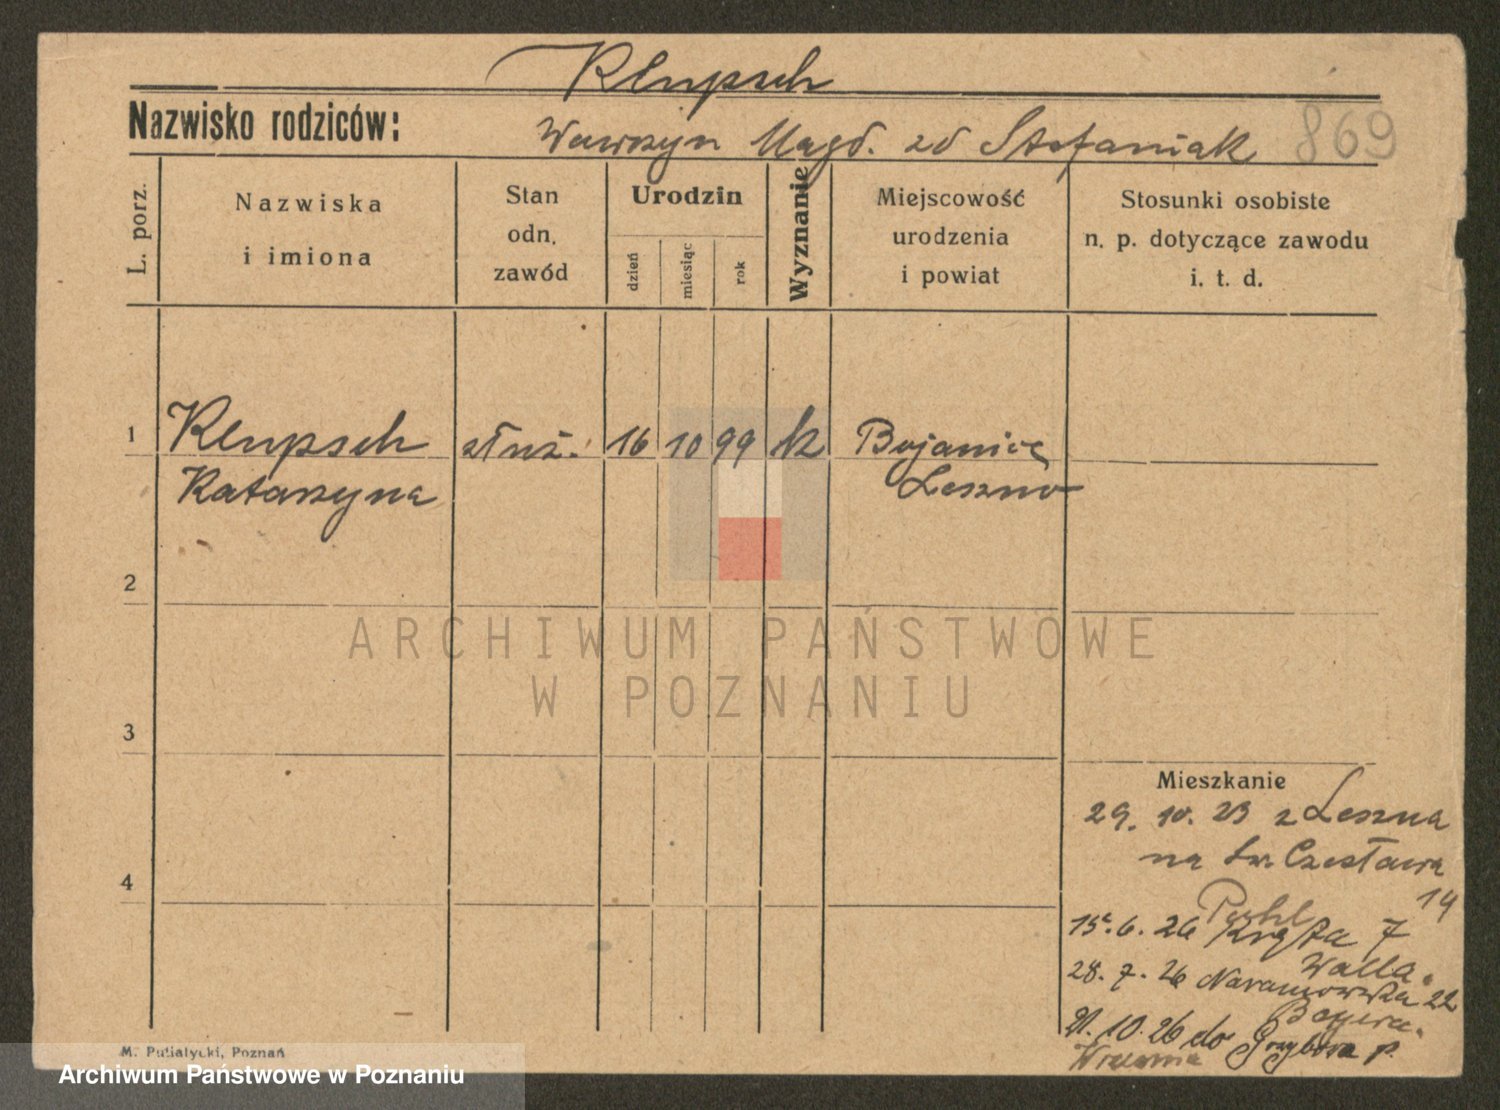 Klupsch
Nazwisko rodziców:
Wawrzyn Magd. zd Stefaniak 869
L. porz.
Nazwiska
i imiona
Stan
odn.
zawód
Urodzin
dzień
miesiąc
rok
Wyznanie
Miejscowość
urodzenia
i powiat
Stosunki osobiste
n. p. dotyczące zawodu
i. t. d.
1 Klupsch służ. 16 10 99 k Bojanice
Katarzyna Leszno
2
ARCHIWUM PAŃSTWOWE
W POZNANIU
3
Mieszkanie
29. 10. 23 z Leszna
na św. Czesława
4
14
15. 6. 26 Kręta 7
28. 7. 26 Naramowska 22
21. 10. 26 do Grzybowa p.
Września
M. Putiatycki, Poznań
Archiwum Państwowe w Poznaniu